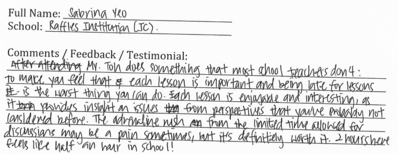 Full Name: Sabrina Yeo
School: Raffles Institution (JC).
Comments / Feedback / Testimonial:
After attending Mr. Toh does something that most school teachers don't:
to make you feel that each lesson is important and being late for lessons
is the worst thing you can do. Each lesson is enjoyable and interesting, as
it provides insight on issues from perspectives that you've probably not
considered before. The adrenaline rush from the limited time allowed for
discussions may be a pain sometimes, but it's definitely worth it. 2 hours here
feels like half an hour in school!